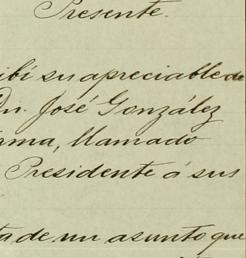 Presente.
ibí su apreciable de
Dn. José González
irma, llamado
Presidente á sus
ta de un asunto que